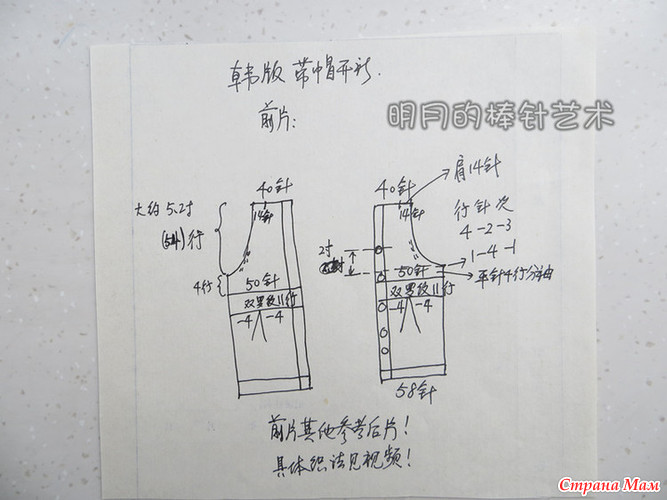 韩版 带帽开衫.
前片:
明月的棒针艺术
40针
大约5.2寸
(54)行
14针
4行
50针
双罗纹11行
-4 -4
40针
肩14针
14针
行针次
4-2-3
1-4-1
2寸
50针
平针4行分袖
双罗纹11行
-4 -4
58针
前片其他参考后片!
具体织法见视频!
Страна Мам